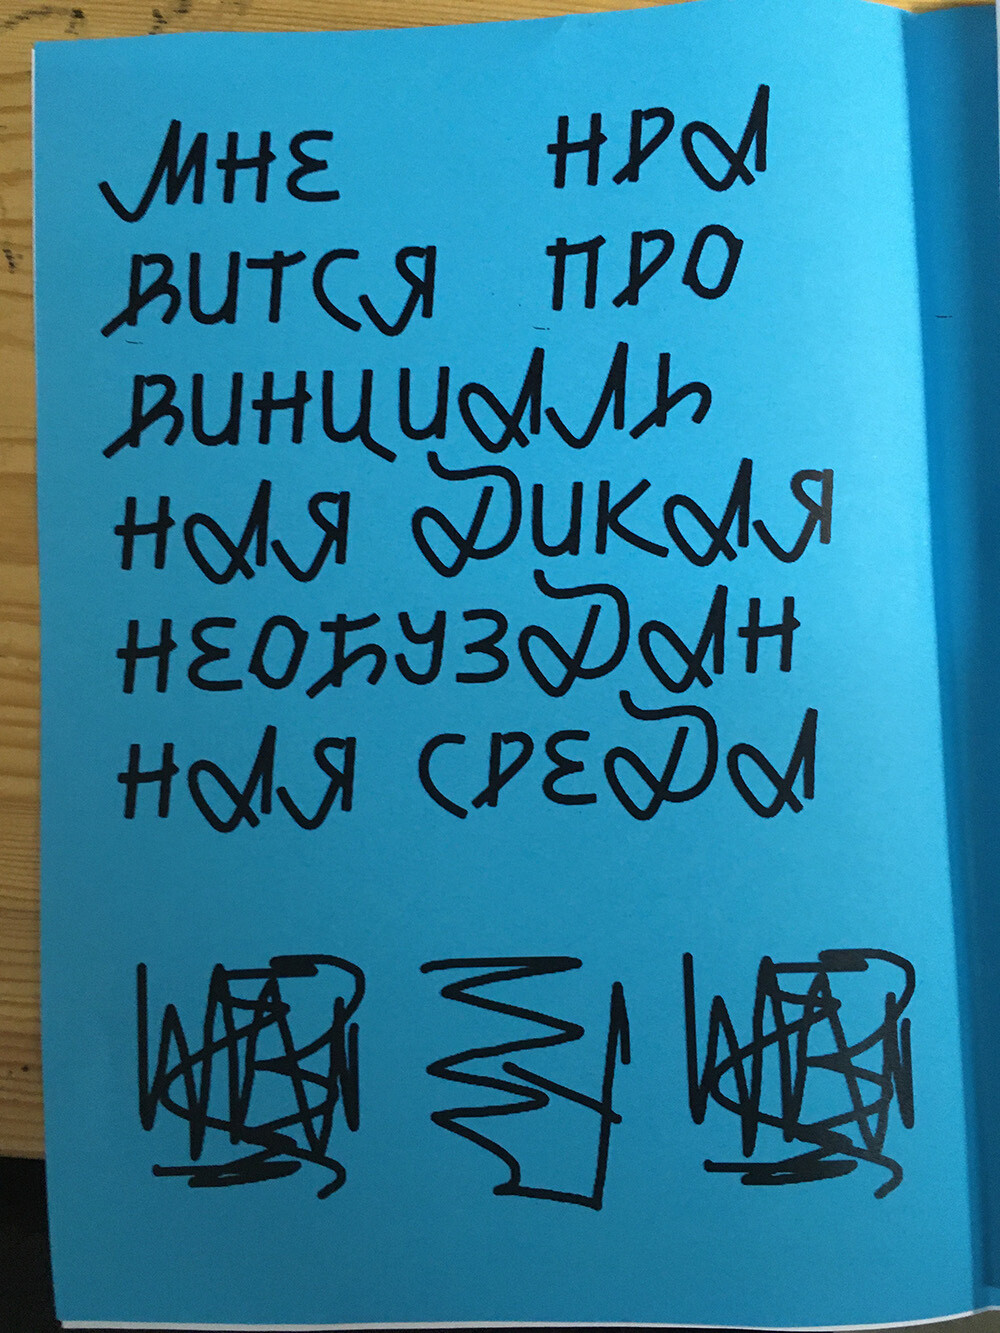 МНЕ НРА
ВИТСЯ ПРО
ВИНЦИАЛЬ
НАЯ ДИКАЯ
НЕОБУЗДАН
НАЯ СРЕДА